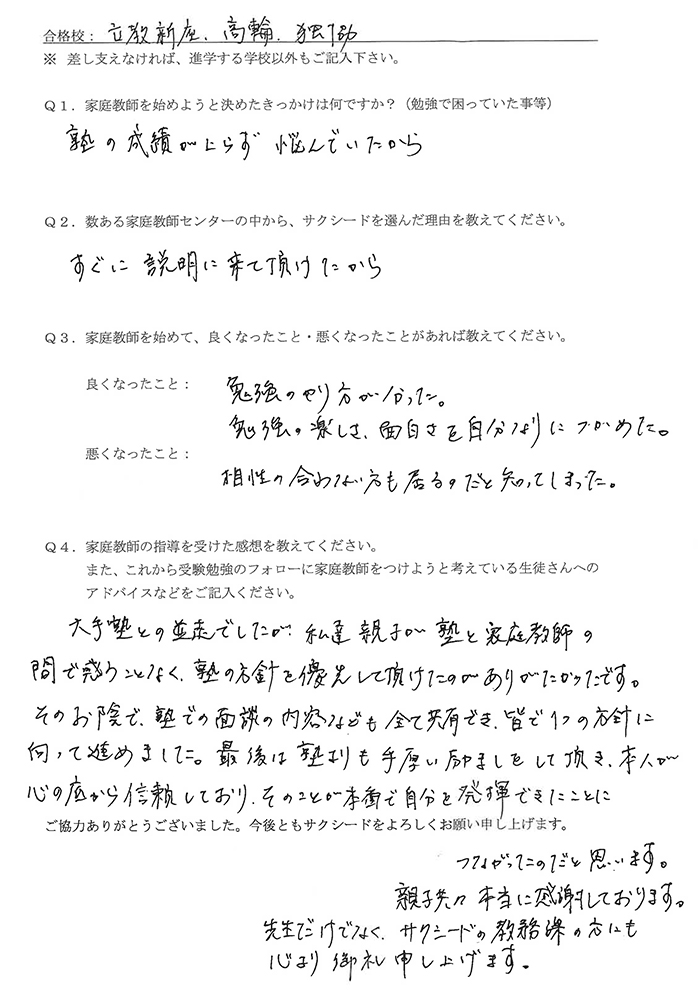 合格校： 立教新座、高輪、独協
※ 差し支えなければ、進学する学校以外もご記入下さい。
Ｑ１．家庭教師を始めようと決めたきっかけは何ですか？（勉強で困っていた事等）
塾の成績が上らず 悩んでいたから
Ｑ２．数ある家庭教師センターの中から、サクシードを選んだ理由を教えてください。
すぐに 説明に来て頂けたから
Ｑ３．家庭教師を始めて、良くなったこと・悪くなったことがあれば教えてください。
良くなったこと： 勉強のやり方が分った。
勉強の楽しさ、面白さを自分なりにつかめた。
悪くなったこと：
相性の合わない方も居るのだと知ってしまった。
Ｑ４．家庭教師の指導を受けた感想を教えてください。
また、これから受験勉強のフォローに家庭教師をつけようと考えている生徒さんへの
アドバイスなどをご記入ください。
大手塾との並走でしたが、私達親子が塾と家庭教師の
間で惑うことなく、塾の方針を優先して頂けたのがありがたかったです。
そのお陰で、塾での面談の内容なども全て共有でき、皆で1つの方針に
向って進めました。最後は塾よりも手厚い励ましをして頂き、本人が
心の底から信頼しており、そのことが本番で自分を発揮できたことに
ご協力ありがとうございました。今後ともサクシードをよろしくお願い申し上げます。
つながったのだと思います。
親子共々本当に感謝しております。
先生だけでなく、サクシードの教務課の方にも
心より御礼申し上げます。